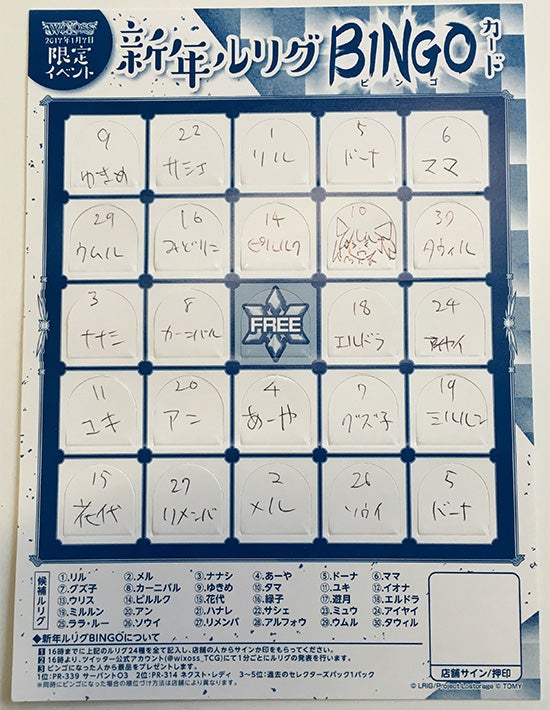 WIXOSS
2017年1月7日
限定
イベント
新年ルリグBINGOカード
ビンゴ
9 22 1 5 6
ゆきめ サシェ リル ドーナ ママ
29 16 14 10 30
ウムル みどりこ ピルルク タウィル
3 8 18 24
ナナシ カーニバル FREE エルドラ アイヤイ
11 20 4 7 19
ユキ アン あーや グズ子 ミルルン
15 27 2 26 5
花代 リメンバ メル ソウイ ドーナ
候補ルリグ
①.リル ②.メル ③.ナナシ ④.あーや ⑤.ドーナ ⑥.ママ
⑦.グズ子 ⑧.カーニバル ⑨.ゆきめ ⑩.タマ ⑪.ユキ ⑫.イオナ
⑬.ウリス ⑭.ピルルク ⑮.花代 ⑯.緑子 ⑰.遊月 ⑱.エルドラ
⑲.ミルルン ⑳.アン ㉑.ハナレ ㉒.サシェ ㉓.ミュウ ㉔.アイヤイ
㉕.ララ・ルー ㉖.ソウイ ㉗.リメンバ ㉘.アルフォウ ㉙.ウムル ㉚.タウィル
◆新年ルリグBINGOについて
1 16時までに上記のルリグ24種を全て記入し、店舗の人からサインか印をもらってください。
2 16時より、ツイッター公式アカウント(@wixoss_TCG)にて1分ごとにルリグの発表を行います。
3 ビンゴになった人から景品をプレゼントします。
1位:PR-339 サーバントO3 2位:PR-314 ネクスト・レディ 3~5位:過去のセレクターズパック1パック
※同時にビンゴになった場合の順位づけ方法は店舗により異なります。
店舗サイン/押印
© LRIG/Project Lostorage © TOMY